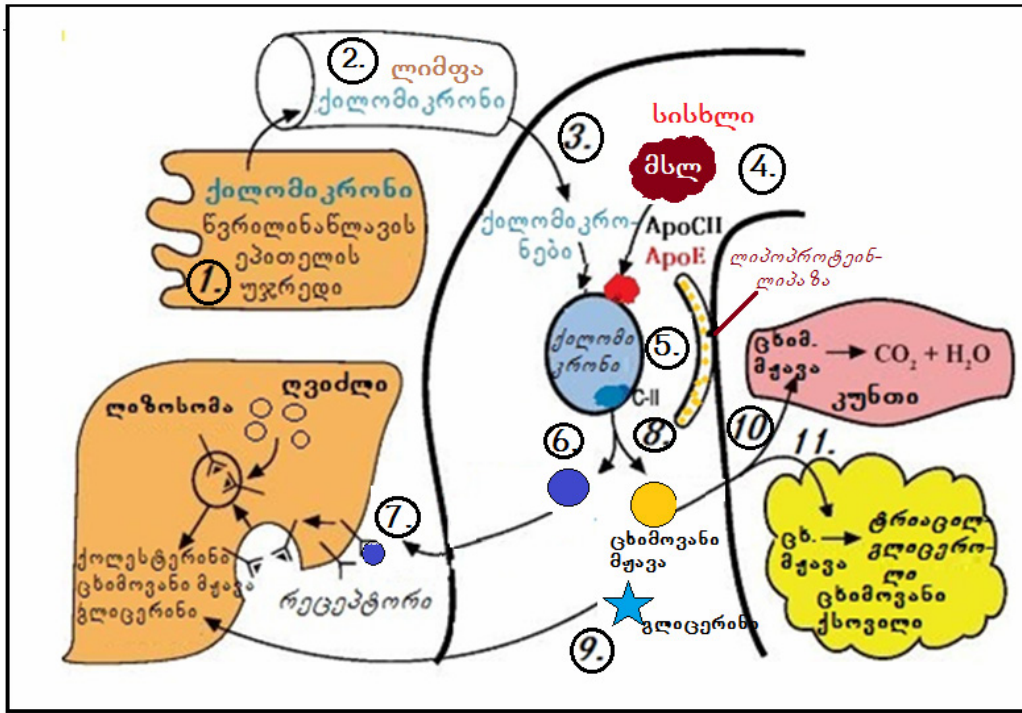 2.
ლიმფა
ქილომიკრონი
ქილომიკრონი
წვრილინაწლავის
ეპითელის
უჯრედი
1.
3.
სისხლი
მსლ
4.
ქილომიკრო-
ნები
ApoCII
ApoE
ლიპოპროტეინ-
ლიპაზა
ქილომი
კრონი
5.
C-II
6.
8.
ცხიმ.
მჟავა
CO₂ + H₂O
კუნთი
10
11.
ღვიძლი
ლიზოსომა
7.
ქოლესტერინი
ცხიმოვანი მჟავა
გლიცერინი
რეცეპტორი
ცხიმოვანი
მჟავა
გლიცერინი
9.
ცხ.
მჟავა
ტრიაცილ-
გლიცერო-
ლი
ცხიმოვანი
ქსოვილი